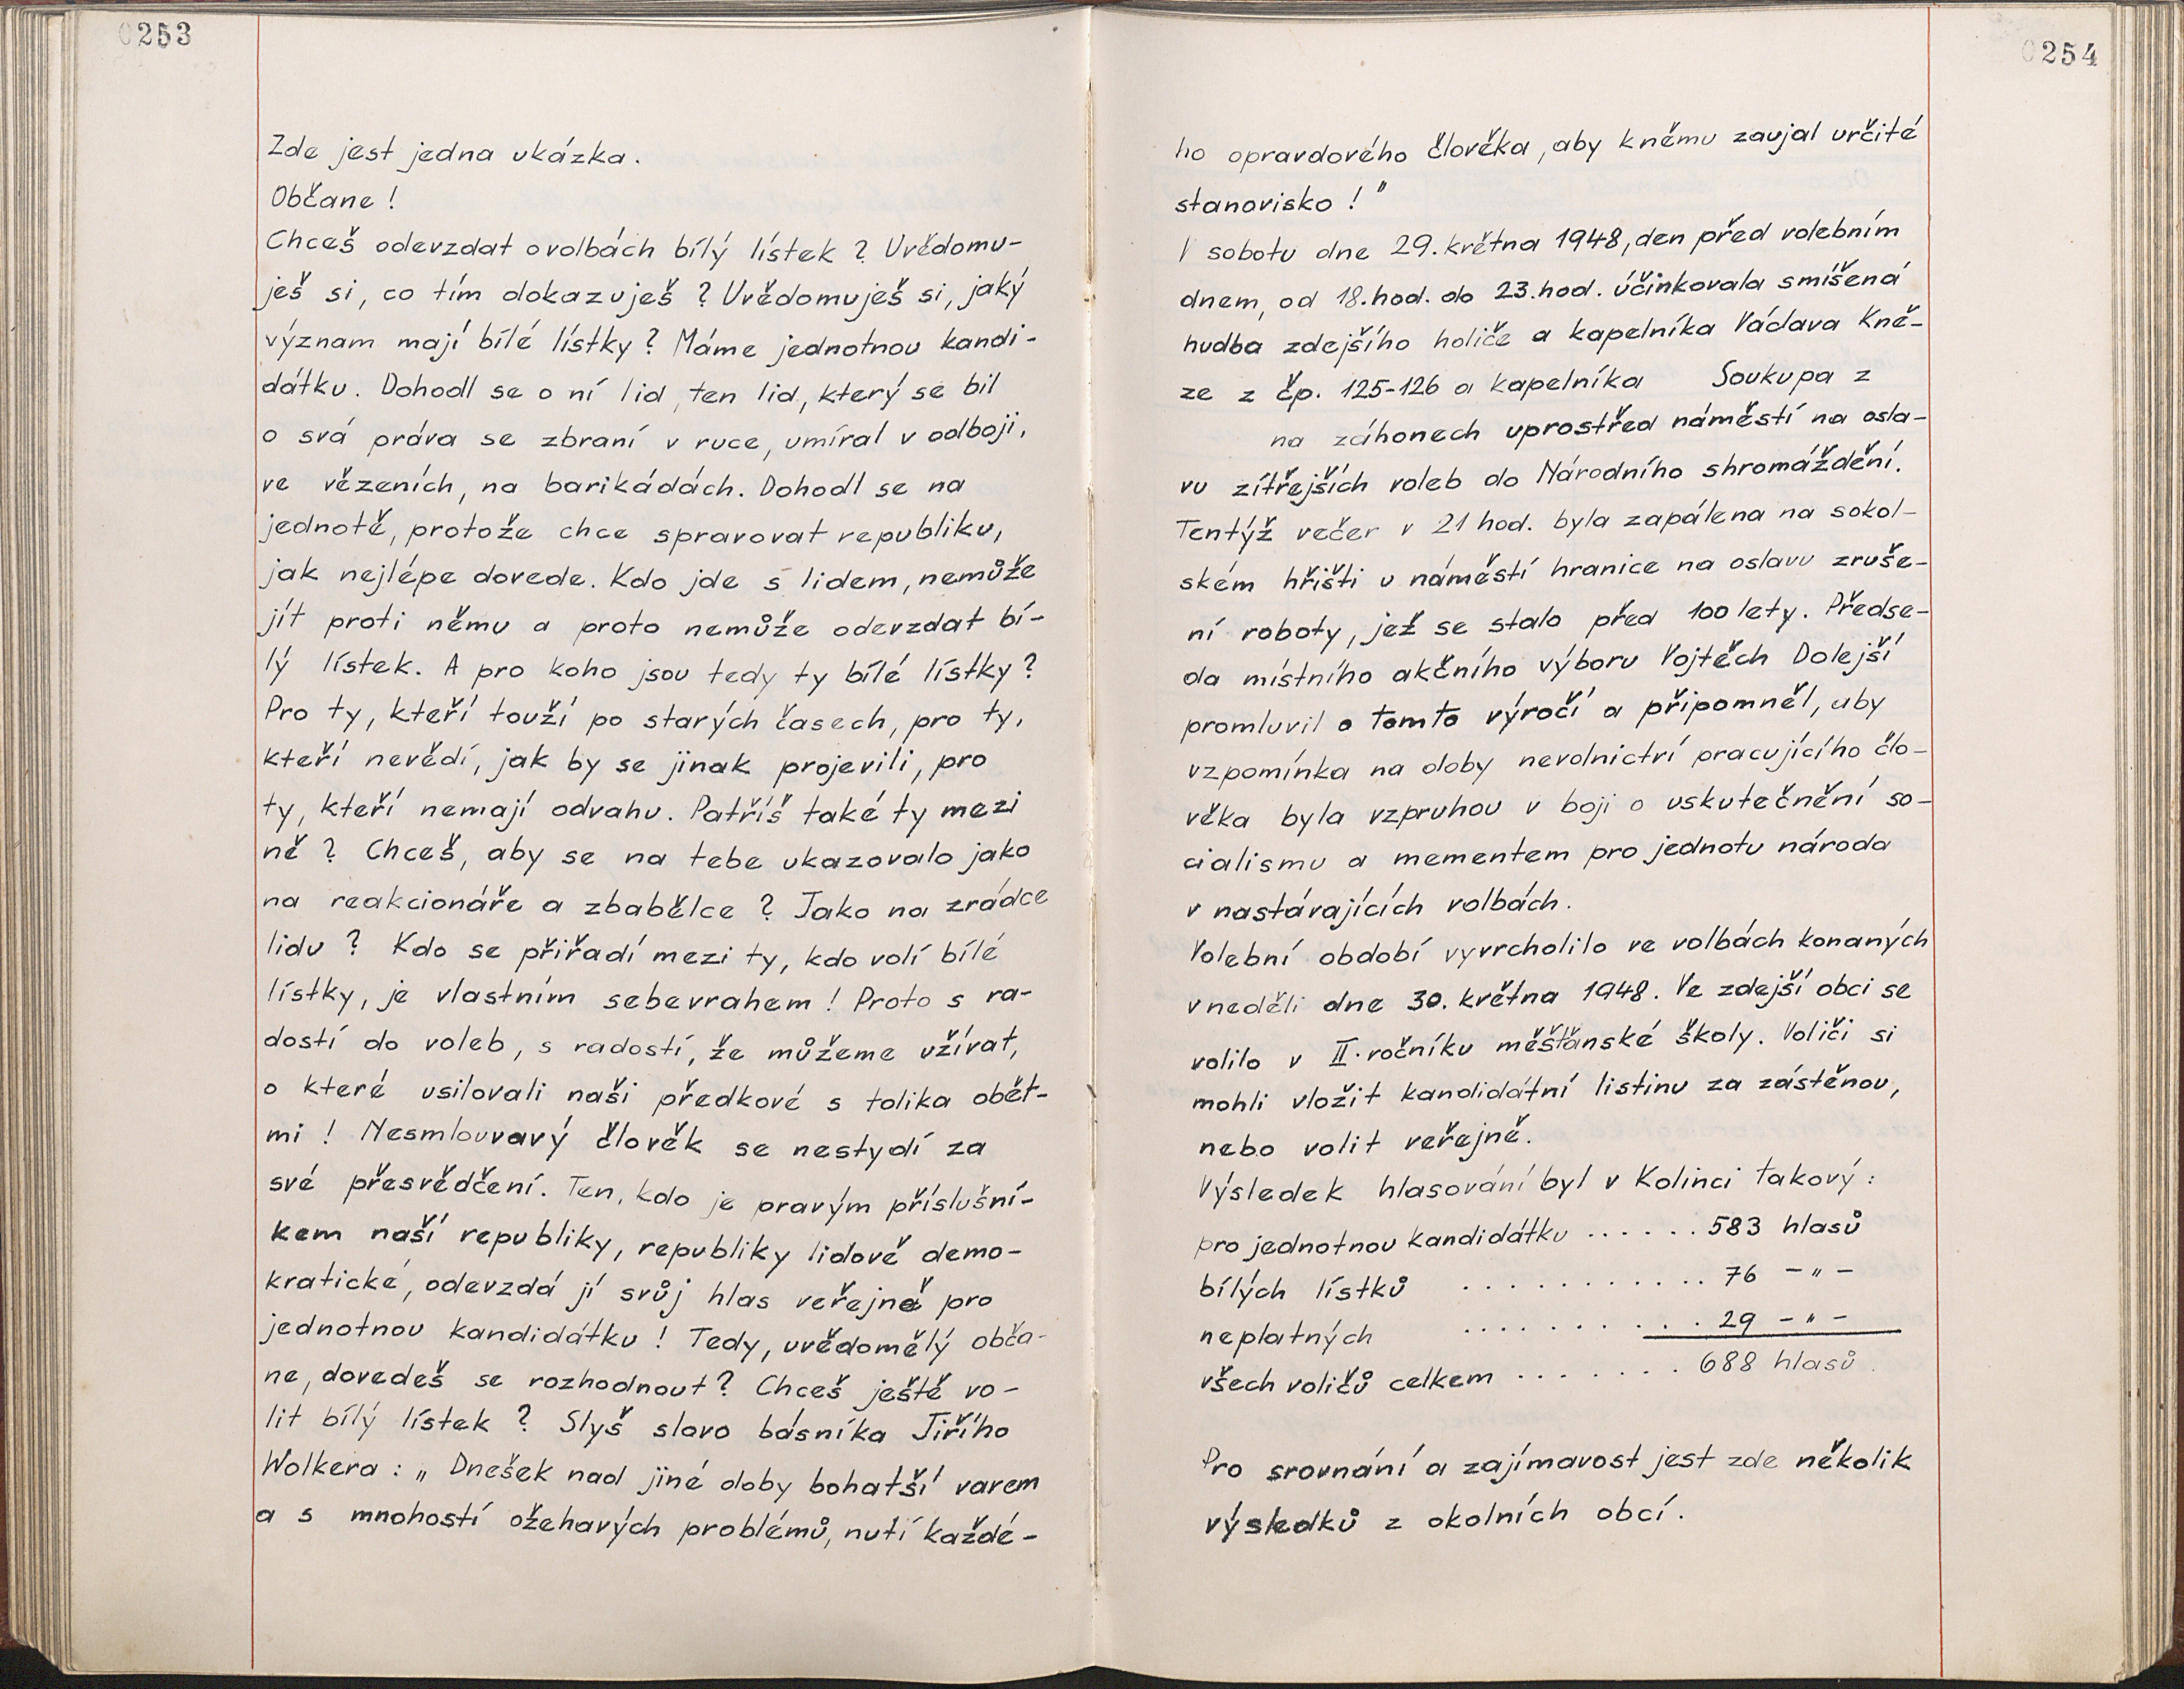 0253
Zde jest jedna ukázka.
Občane!
Chceš odevzdat o volbách bílý lístek? Uvědomu-
ješ si, co tím dokazuješ? Uvědomuješ si, jaký
význam mají bílé lístky? Máme jednotnou kandi-
dátku. Dohodl se o ní lid, ten lid, který se bil
o svá práva se zbraní v ruce, umíral v odboji,
ve vězeních, na barikádách. Dohodl se na
jednotě, protože chce spravovat republiku,
jak nejlépe dovede. Kdo jde s lidem, nemůže
jít proti němu a proto nemůže odevzdat bí-
lý lístek. A pro koho jsou tedy ty bílé lístky?
Pro ty, kteří touží po starých časech, pro ty,
kteří nevědí, jak by se jinak projevili, pro
ty, kteří nemají odvahu. Patříš také ty mezi
ně? Chceš, aby se na tebe ukazovalo jako
na reakcionáře a zbabělce? Jako na zrádce
lidu? Kdo se přiřadí mezi ty, kdo volí bílé
lístky, je vlastním sebevrahem! Proto s ra-
dostí do voleb, s radostí, že můžeme užívat,
o které usilovali naši předkové s tolika obět-
mi! Nesmlouvavý člověk se nestydí za
své přesvědčení. Ten, kdo je pravým příslušní-
kem naší republiky, republiky lidově demo-
kratické, odevzdá jí svůj hlas veřejně pro
jednotnou kandidátku! Tedy, uvědomělý obča-
ne, dovedeš se rozhodnout? Chceš ještě vo-
lit bílý lístek? Slyš slovo básníka Jiřího
Wolkera: „Dnešek nad jiné doby bohatší varem
a s mnohostí ožehavých problémů, nutí každé-
0254
ho opravdového člověka, aby k němu zaujal určité
stanovisko!"
V sobotu dne 29. května 1948, den před volebním
dnem, od 18. hod. do 23. hod. účinkovala smíšená
hudba zdejšího holiče a kapelníka Václava Kně-
ze z čp. 125-126 a kapelníka Soukupa z
na záhonech uprostřed náměstí na osla-
vu zítřejších voleb do Národního shromáždění.
Tentýž večer v 21 hod. byla zapálena na sokol-
ském hřišti u náměstí hranice na oslavu zruše-
ní roboty, jež se stalo před 100 lety. Předse-
da místního akčního výboru Vojtěch Dolejší
promluvil o tomto výročí a připomněl, aby
vzpomínka na doby nevolnictví pracujícího člo-
věka byla vzpruhou v boji o uskutečnění so-
cialismu a mementem pro jednotu národa
v nastávajících volbách.
Volební období vyvrcholilo ve volbách konaných
v neděli dne 30. května 1948. Ve zdejší obci se
volilo v II. ročníku měšťanské školy. Voliči si
mohli vložit kandidátní listinu za zástěnou,
nebo volit veřejně.
Výsledek hlasování byl v Kolinci takový:
pro jednotnou kandidátku ...... 583 hlasů
bílých lístků ............ 76 -"-
neplatných ........... 29 -"-
všech voličů celkem ....... 688 hlasů.
Pro srovnání a zajímavost jest zde několik
výsledků z okolních obcí.